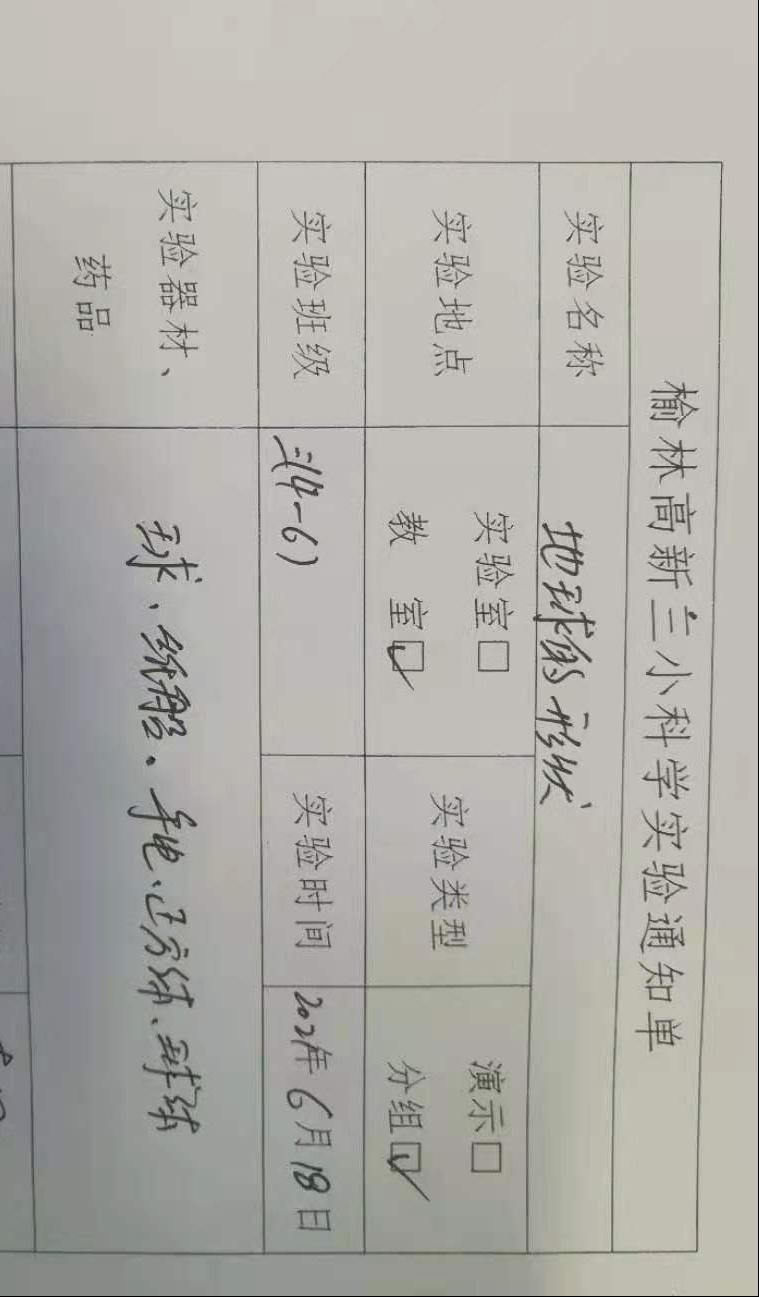 榆林高新三小科学实验通知单
实验名称 地球的形状
实验地点 实验室□ 教 室☑ 实验类型 演示□ 分组☑
实验班级 三(4-6) 实验时间 2021年6月18日
实验器材、
药品
球、纸船。手电、正方体、球体